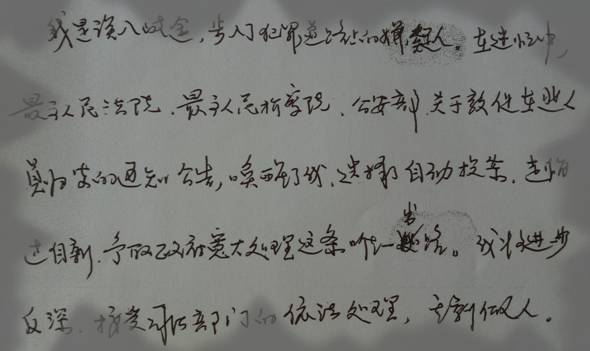 我是误入歧途，步入犯罪道路上的嫌疑人。在迷忙中，
最高人民法院、最高人民检察院、公安部，关于敦促在逃人
员归案的通知公告，唤醒了我，选择了自动投案、悔
过自新、争取政府宽大处理这条唯一出路。我将进步
反深、接受司法部门的依法处理，重新做人。